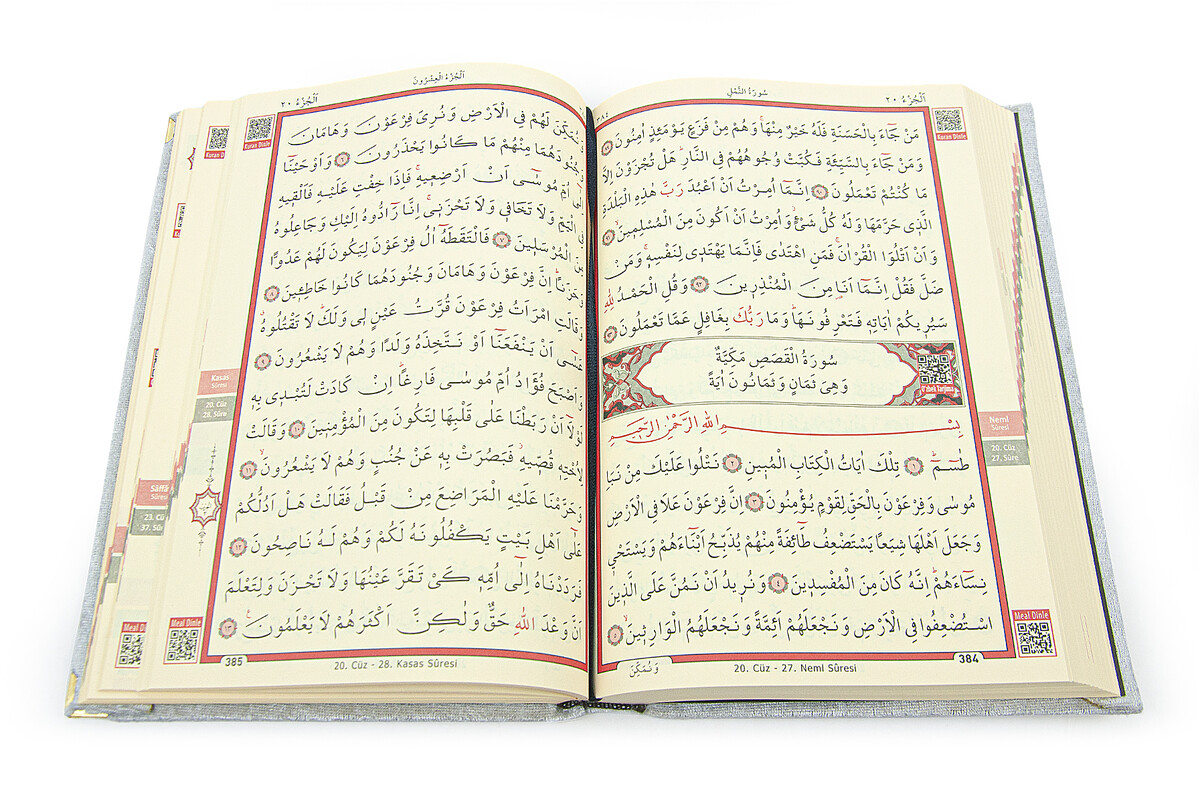 اَلْجُزْءُ ٢٠
سُورَةُ النَّمْلِ
Kuran Dinle
مَنْ جَٓاءَ بِالْحَسَنَةِ فَلَهُ خَيْرٌ مِنْهَاۚ وَهُمْ مِنْ فَزَعٍ يَوْمَئِذٍ اٰمِنُونَ ﴿٨٩﴾
وَمَنْ جَٓاءَ بِالسَّيِّئَةِ فَكُبَّتْ وُجُوهُهُمْ فِي النَّارِۜ هَلْ تُجْزَوْنَ اِلَّا
مَا كُنْتُمْ تَعْمَلُونَ ﴿٩٠﴾ اِنَّمَٓا اُمِرْتُ اَنْ اَعْبُدَ رَبَّ هٰذِهِ الْبَلْدَةِ
الَّذ۪ي حَرَّمَهَا وَلَهُ كُلُّ شَيْءٍۘ وَاُمِرْتُ اَنْ اَكُونَ مِنَ الْمُسْلِم۪ينَۙ ﴿٩١﴾
وَاَنْ اَتْلُوَا الْقُرْاٰنَۚ فَمَنِ اهْتَدٰى فَاِنَّمَا يَهْتَد۪ي لِنَفْسِه۪ۚ وَمَنْ
ضَلَّ فَقُلْ اِنَّمَٓا اَنَا۬ مِنَ الْمُنْذِر۪ينَ ﴿٩٢﴾ وَقُلِ الْحَمْدُ لِلّٰهِ
سَيُر۪يكُمْ اٰيَاتِه۪ فَتَعْرِفُونَهَاۜ وَمَا رَبُّكَ بِغَافِلٍ عَمَّا تَعْمَلُونَ ﴿٩٣﴾
سُورَةُ الْقَصَصِ مَكِّيَّةٌ
وَهِيَ ثَمَانٍ وَثَمَانُونَ اٰيَةً
بِسْمِ اللّٰهِ الرَّحْمٰنِ الرَّح۪يمِ
طٰسٓمٓ ﴿١﴾ تِلْكَ اٰيَاتُ الْكِتَابِ الْمُب۪ينِ ﴿٢﴾ نَتْلُوا عَلَيْكَ مِنْ نَبَاِ
مُوسٰى وَفِرْعَوْنَ بِالْحَقِّ لِقَوْمٍ يُؤْمِنُونَ ﴿٣﴾ اِنَّ فِرْعَوْنَ عَلَا فِي الْاَرْضِ
وَجَعَلَ اَهْلَهَا شِيَعًا يَسْتَضْعِفُ طَٓائِفَةً مِنْهُمْ يُذَبِّحُ اَبْنَٓاءَهُمْ وَيَسْتَحْي۪
نِسَٓاءَهُمْۜ اِنَّهُ كَانَ مِنَ الْمُفْسِد۪ينَ ﴿٤﴾ وَنُر۪يدُ اَنْ نَمُنَّ عَلَى الَّذ۪ينَ
اسْتُضْعِفُوا فِي الْاَرْضِ وَنَجْعَلَهُمْ اَئِمَّةً وَنَجْعَلَهُمُ الْوَارِث۪ينَۙ ﴿٥﴾
Neml
Sûresi
20. Cüz
27. Sûre
Meal Dinle
384
20. Cüz - 27. Neml Sûresi
وَنُمَكِّنَ
اَلْجُزْءُ الْعِشْرُونَ
اَلْجُزْءُ ٢٠
Kuran Dinle
وَنُمَكِّنَ لَهُمْ فِي الْاَرْضِ وَنُرِيَ فِرْعَوْنَ وَهَامَانَ
وَجُنُودَهُمَا مِنْهُمْ مَا كَانُوا يَحْذَرُونَ ﴿٦﴾ وَاَوْحَيْنَٓا
اِلٰٓى اُمِّ مُوسٰٓى اَنْ اَرْضِع۪يهِۚ فَاِذَا خِفْتِ عَلَيْهِ فَاَلْق۪يهِ
فِي الْيَمِّ وَلَا تَخَاف۪ي وَلَا تَحْزَن۪يۚ اِنَّا رَٓادُّوهُ اِلَيْكِ وَجَاعِلُوهُ
مِنَ الْمُرْسَل۪ينَ ﴿٧﴾ فَالْتَقَطَهُٓ اٰلُ فِرْعَوْنَ لِيَكُونَ لَهُمْ عَدُوًّا
وَحَزَنًاۜ اِنَّ فِرْعَوْنَ وَهَامَانَ وَجُنُودَهُمَا كَانُوا خَاطِـ۪ٔينَ ﴿٨﴾
وَقَالَتِ امْرَاَتُ فِرْعَوْنَ قُرَّتُ عَيْنٍ ل۪ي وَلَكَۜ لَا تَقْتُلُوهُۗ
عَسٰٓى اَنْ يَنْفَعَنَٓا اَوْ نَتَّخِذَهُ وَلَدًا وَهُمْ لَا يَشْعُرُونَ ﴿٩﴾
وَاَصْبَحَ فُؤٰادُ اُمِّ مُوسٰى فَارِغًاۜ اِنْ كَادَتْ لَتُبْد۪ي بِه۪
لَوْلَٓا اَنْ رَبَطْنَا عَلٰى قَلْبِهَا لِتَكُونَ مِنَ الْمُؤْمِن۪ينَ ﴿١٠﴾ وَقَالَتْ
لِاُخْتِه۪ قُصّ۪يهِۘ فَبَصُرَتْ بِه۪ عَنْ جُنُبٍ وَهُمْ لَا يَشْعُرُونَۙ ﴿١١﴾
وَحَرَّمْنَا عَلَيْهِ الْمَرَاضِعَ مِنْ قَبْلُ فَقَالَتْ هَلْ اَدُلُّكُمْ
عَلٰٓى اَهْلِ بَيْتٍ يَكْفُلُونَهُ لَكُمْ وَهُمْ لَهُ نَاصِحُونَ ﴿١٢﴾
فَرَدَدْنَاهُ اِلٰٓى اُمِّه۪ كَيْ تَقَرَّ عَيْنُهَا وَلَا تَحْزَنَ وَلِتَعْلَمَ
اَنَّ وَعْدَ اللّٰهِ حَقٌّ وَلٰكِنَّ اَكْثَرَهُمْ لَا يَعْلَمُونَ۟ ﴿١٣﴾
Kasas
Sûresi
20. Cüz
28. Sûre
Meal Dinle
385
20. Cüz - 28. Kasas Sûresi
Sâffât
Meal Dinle